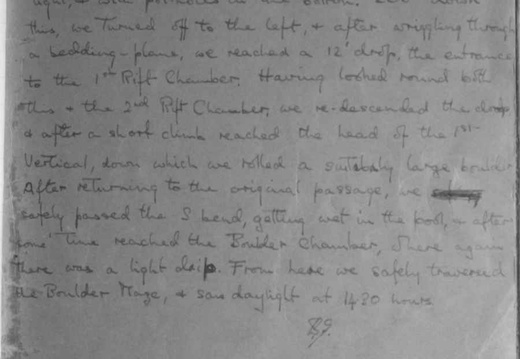 tight, & with potholes in the bottom.
this, we turned off to the left, & after wriggling through
a bedding-plane, we reached a 12' drop, the entrance
to the 1st Rift Chamber. Having looked round both
this & the 2nd Rift Chamber, we re-descended the drop
& after a short climb reached the head of the 1st
Vertical, down which we rolled a suitably large boulder
After returning to the original passage, we
safely passed the S bend, getting wet in the pool, & after
some time reached the Boulder Chamber, where again
there was a light drip. From here we safely traversed
the Boulder Maze, & saw daylight at 1430 hours.